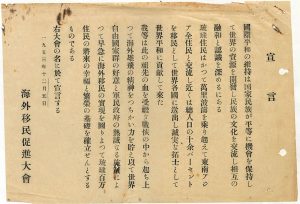 宣言
國際平和の維持は国家民族が平等に機會を保持し
て世界の資源を開發し民族の文化を交流し相互の
融和と認識を深めるにある
琉球住民はかつて萬里波濤を乗り超えて東南アジ
ア全住民と交流し近くは總人口の十余パーセント
を移民として世界各國に送出し誠実な拓士として
世界平和に貢献して来た
我等は此の祖先の血を受継ぎ戰後の中から起ち上
つて海外雄飛の精神をつちかい力を貯え以て世界
自由國家群の好意と米民政府の熱誠なる
つて早急に海外移民の實現を図りよつて琉球百万
住民の将來の幸福と繁榮の基礎を確立せんとする
ものである
右大會の名に於て宣言する
一九五三年十二月五日
海外移民促進大會